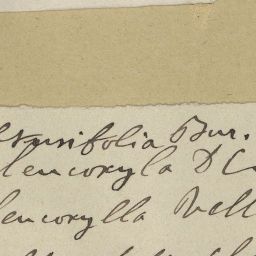 obtusifolia Bur.
leucoxyla DC
leucoxylla Vell